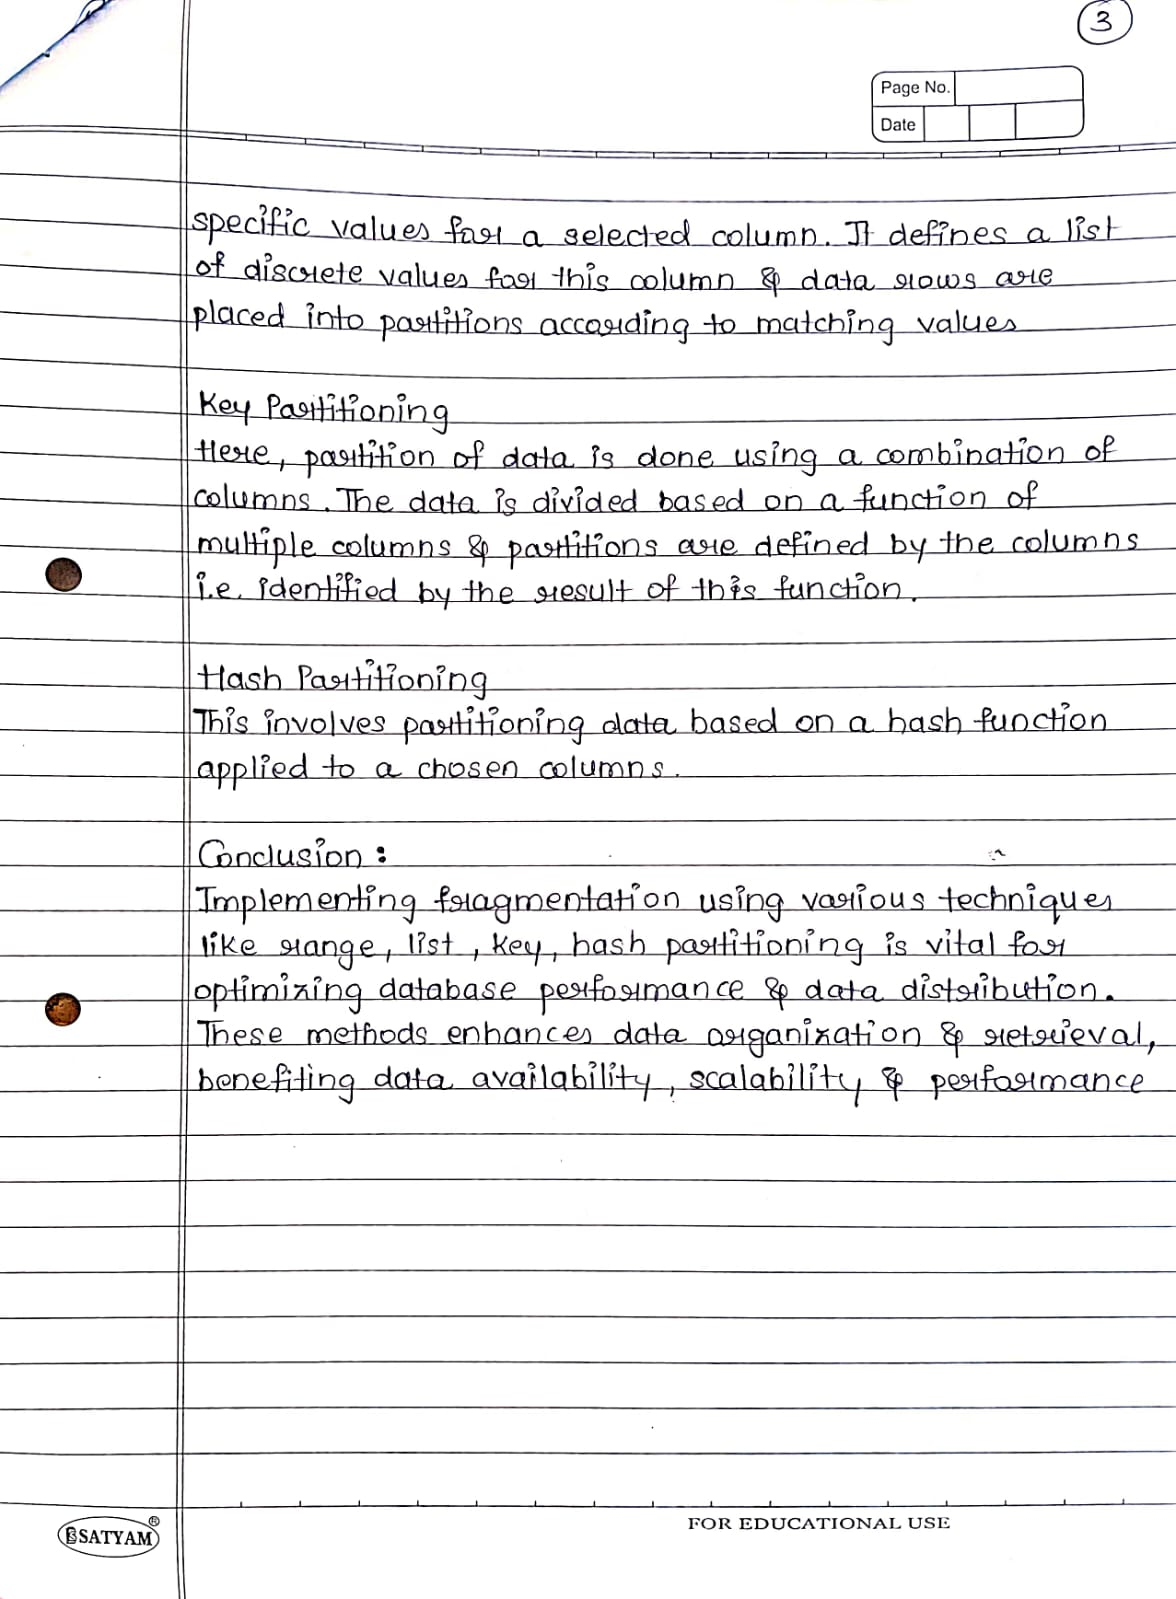 3
Page No.
Date
specific values for a selected column. It defines a list
of discrete values for this column & data rows are
placed into partitions according to matching values
Key Partitioning
Here, partition of data is done using a combination of
columns. The data is divided based on a function of
multiple columns & partitions are defined by the columns
i.e. identified by the result of this function.
Hash Partitioning
This involves partitioning data based on a hash function
applied to a chosen columns.
Conclusion :
Implementing fragmentation using various techniques
like range, list, key, hash partitioning is vital for
optimizing database performance & data distribution.
These methods enhances data organization & retrieval,
benefiting data availability, scalability & performance
SATYAM®
FOR EDUCATIONAL USE